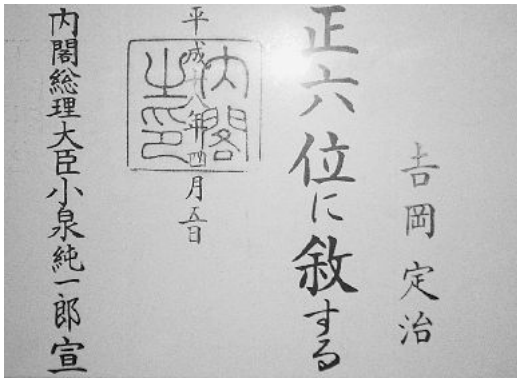 吉岡定治
正六位に敘する
平成十八年四月五日
内閣之印
内閣総理大臣小泉純一郎宣